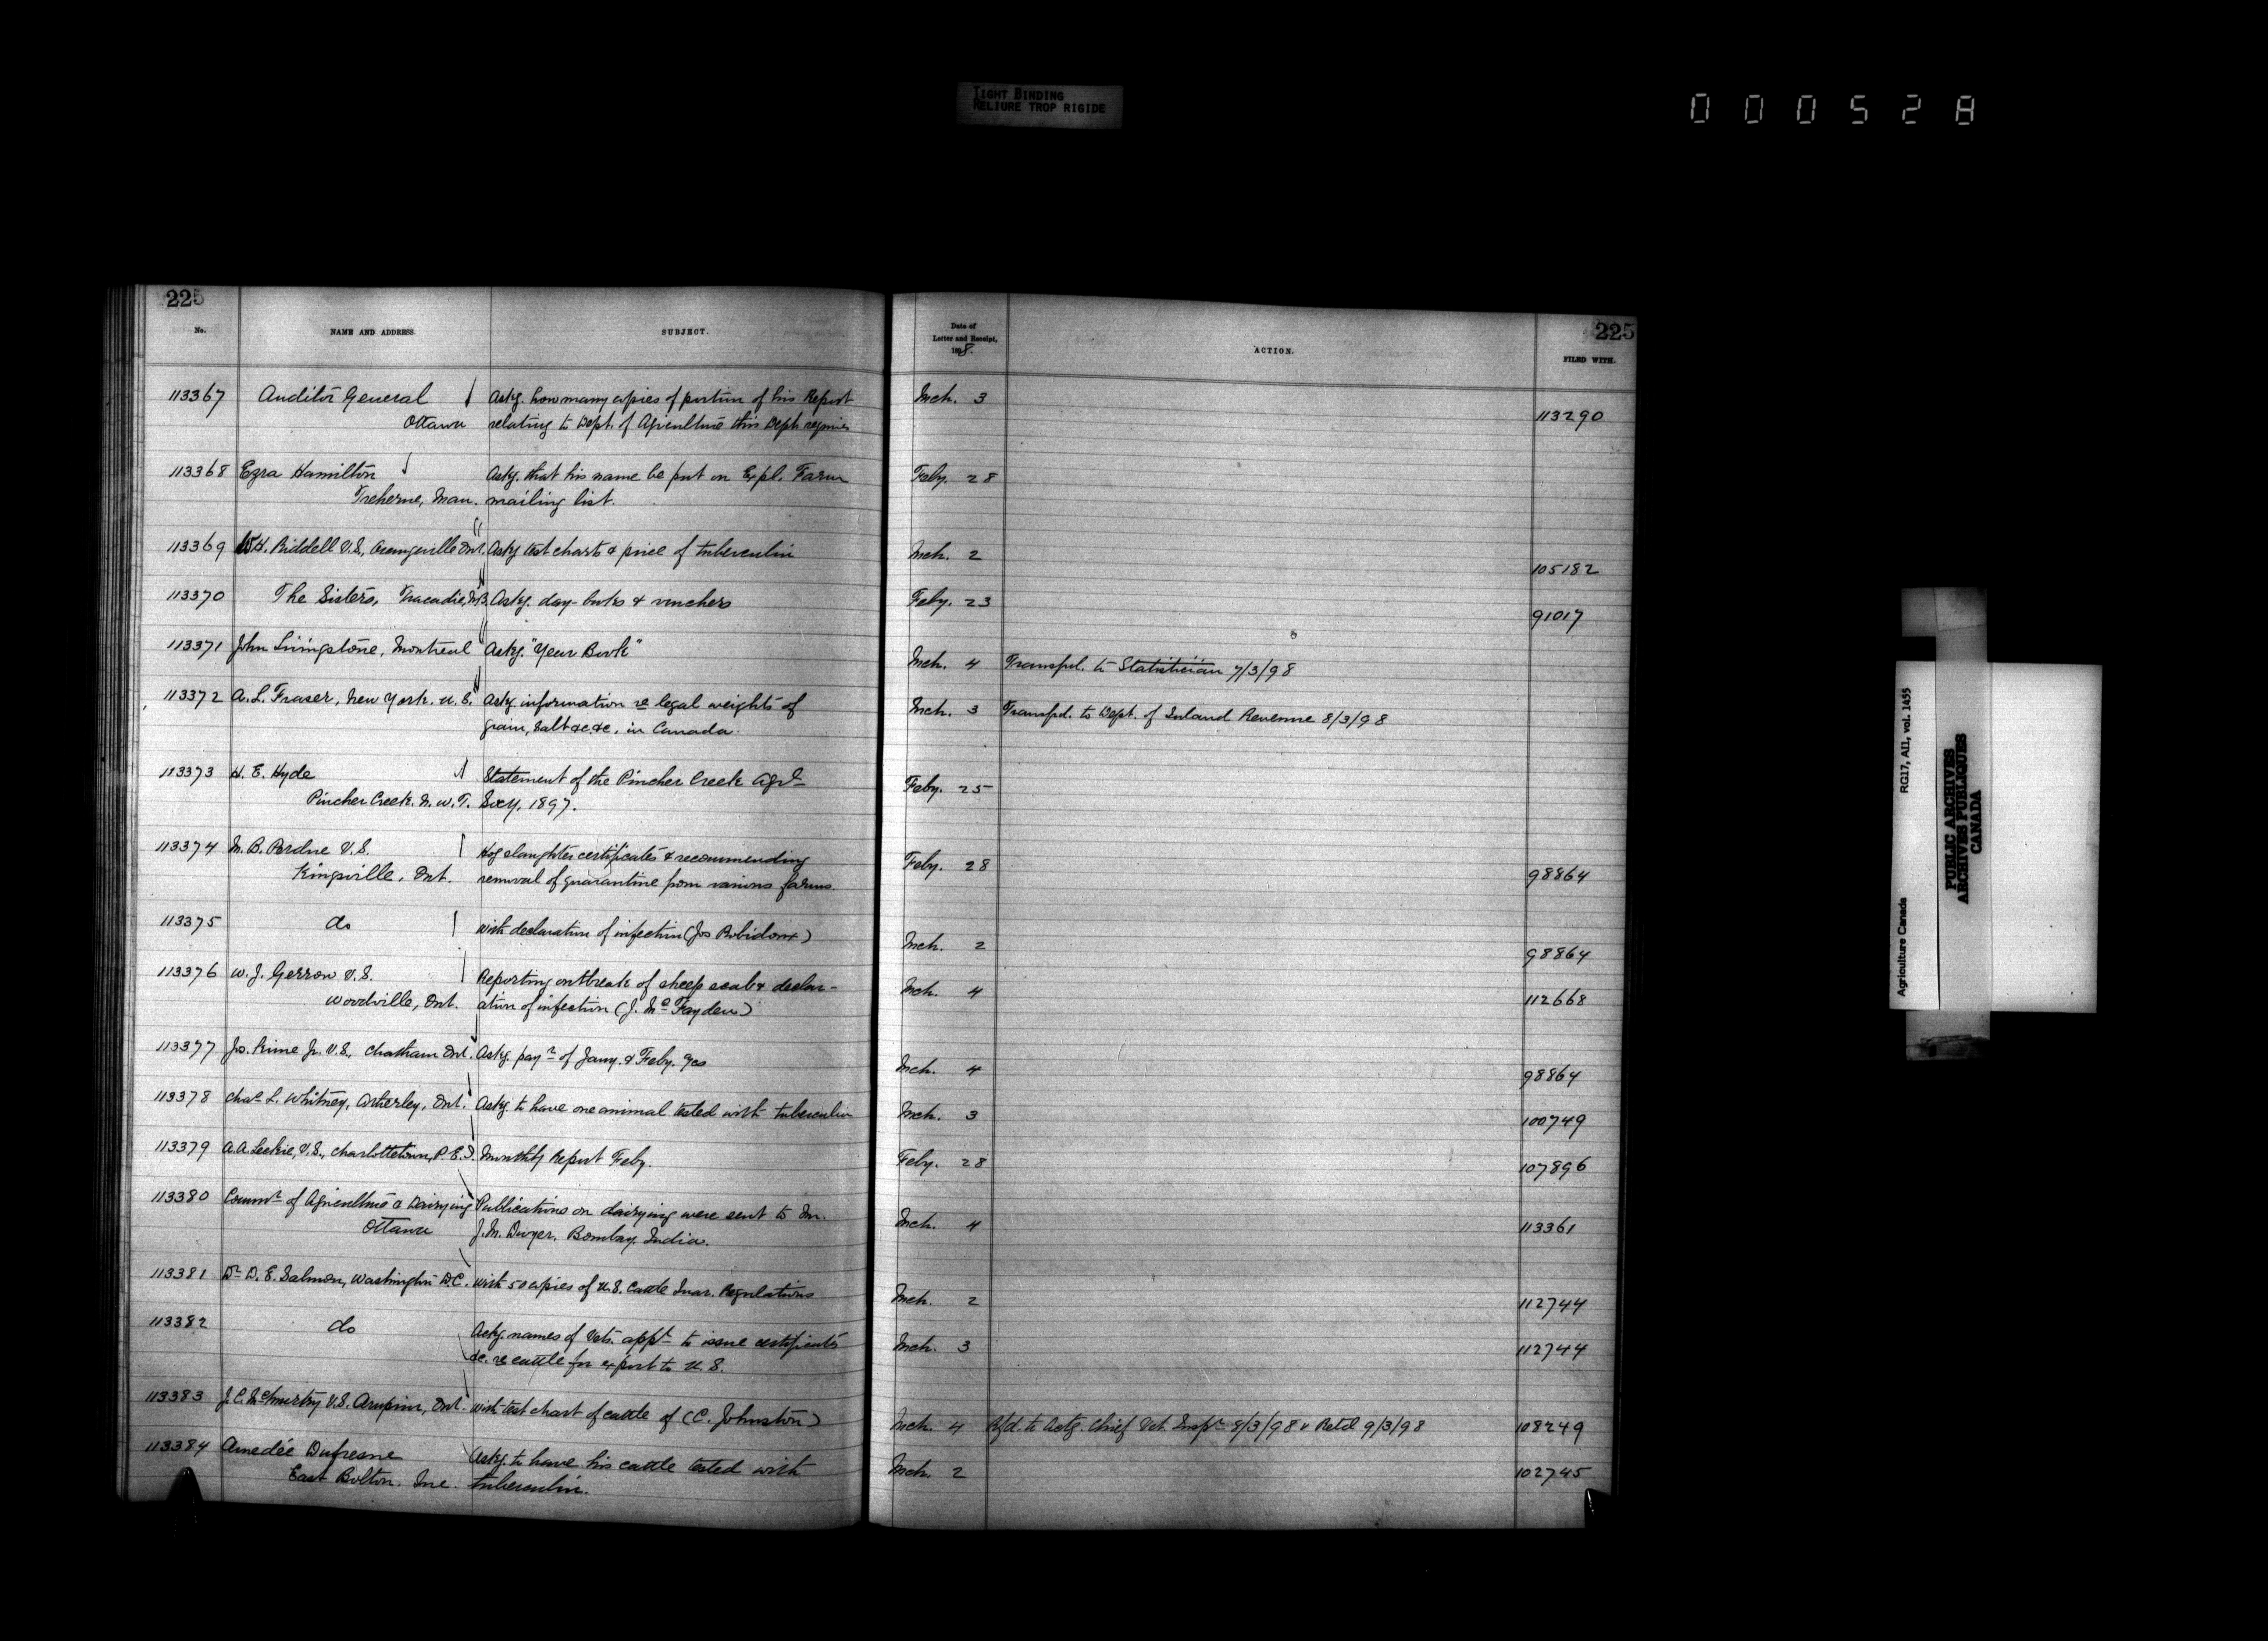 TIGHT BINDING
RELIURE TROP RIGIDE
000528
225
No.
NAME AND ADDRESS.
SUBJECT.
113367 Auditor General Askg. how many copies of portion of his Report
Ottawa relating to Dept. of Agriculture this Dept. requires
113368 Ezra Hamilton Askg. that his name be put on Expl. Farm
Treherne, Man. mailing list.
113369 W.H. Riddell V.S., Orangeville Ont. Askg test charts & price of tuberculin
113370 The Sisters, Tracadie, N.B. Askg. day-books & vouchers
113371 John Livingstone, Montreal Askg. "Year Book"
113372 A. L. Fraser, New York. U.S. Askg information re legal weights of
grain, salt &c. &c. in Canada.
113373 H. E. Hyde Statement of the Pincher Creek Agrl
Pincher Creek. N.W.T. Socy, 1897.
113374 M. B. Perdue V.S. Hog slaughter certificates & recommending
Kingsville, Ont. removal of quarantine from various farms.
113375 do With declaration of infection (Jos Robidoux)
113376 W. J. Gerrow V.S. Reporting outbreak of sheep scab & declar-
Woodville, Ont. ation of infection (J. McFayden)
113377 Jos. Kime Jr. V.S., Chatham Ont. Askg. payt of Jany. & Feby. %cs
113378 Chas L. Whitney, Atherley, Ont. Askg to have one animal tested with tuberculin
113379 A. A. Leckie, V.S., Charlottetown, P.E.I. Monthly Report Feby.
113380 Commr of Agriculture & Dairying Publications on dairying were sent to Mr.
Ottawa J. M. Dwyer, Bombay, India.
113381 Dr D. E. Salmon, Washington D.C. With 50 copies of U.S. Cattle Quar. Regulations
113382 do Askg names of Vets. appt to issue certificates
&c. re cattle for export to U.S.
113383 J. C. McMurtry V.S. Arnprior, Ont. With test chart of cattle of (C. Johnston)
113384 Amedée Dufresne Askg. to have his cattle tested with
East Bolton. Que. tuberculin.
225
Date of
Letter and Receipt,
1898.
ACTION.
FILED WITH.
Mch. 3 113290
Feby. 28
Mch. 2 105182
Feby. 23 91017
Mch. 4 Transfd. to Statistician 7/3/98
Mch. 3 Transfd. to Dept. of Inland Revenue 8/3/98
Feby. 25
Feby. 28 98864
Mch. 2 98864
Mch. 4 112668
Mch. 4 98864
Mch. 3 100749
Feby. 28 107896
Mch. 4 113361
Mch. 2 112744
Mch. 3 112744
Mch. 4 Rfd. to Actg. Chief Vet. Inspr 8/3/98 & Retd 9/3/98 108249
Mch. 2 102745
Agriculture Canada RG17, AII, vol. 1455
PUBLIC ARCHIVES
ARCHIVES PUBLIQUES
CANADA